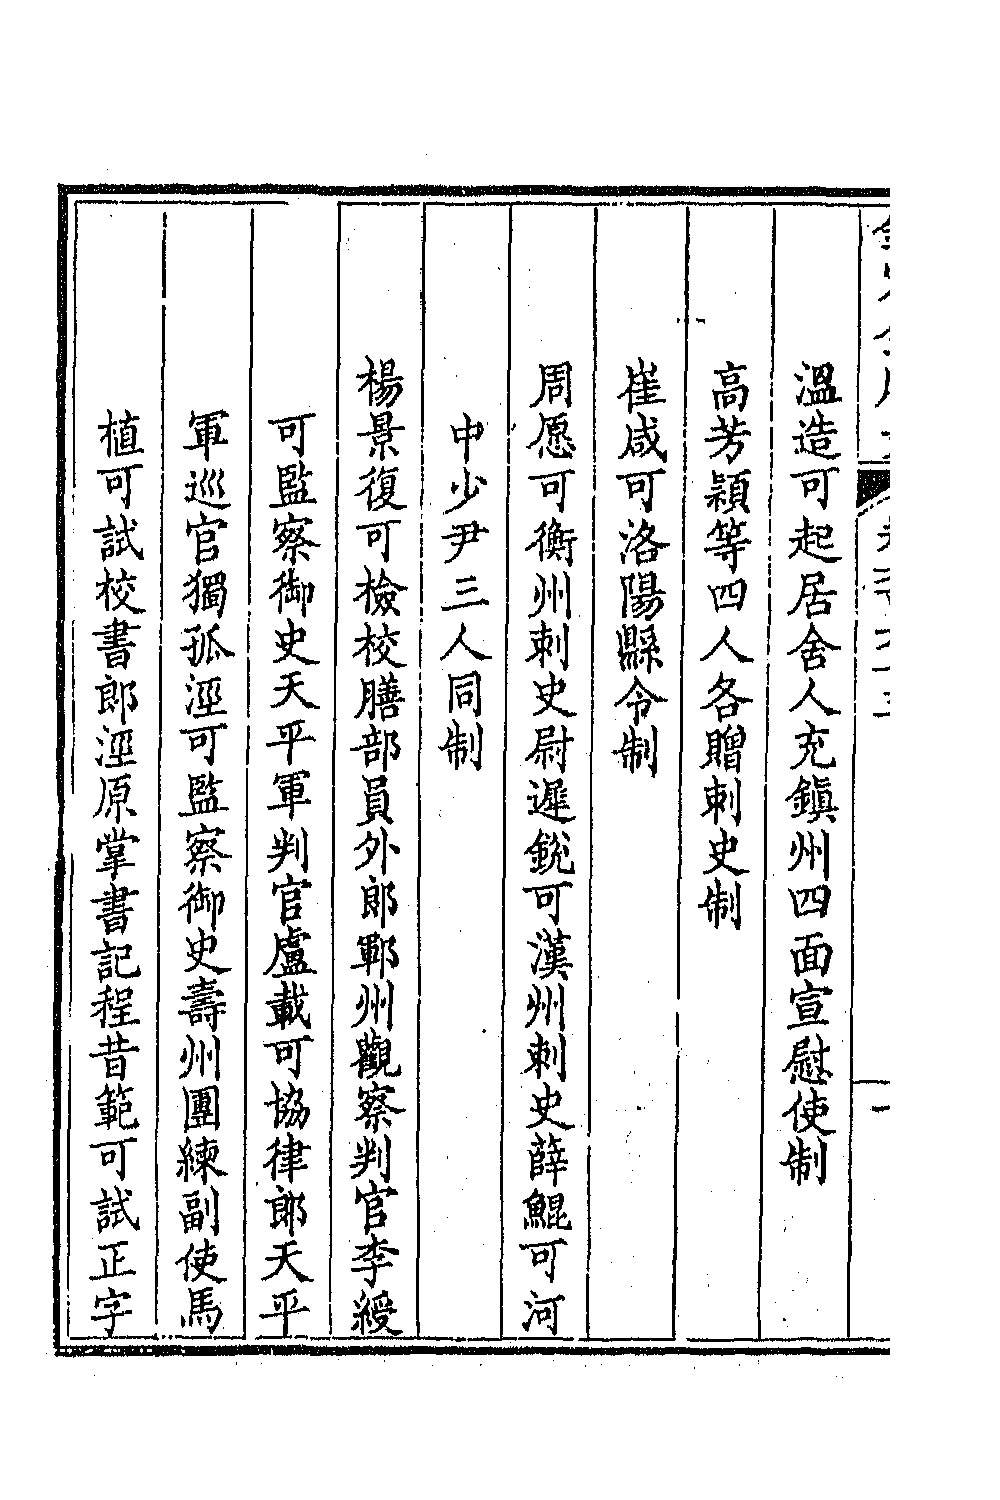 溫造可起居舍人充鎮州四面宣慰使制
高芳頴等四人各贈刺史制
崔咸可洛陽縣令制
周愿可衡州刺史尉遲銳可漢州刺史薛鯤可河
中少尹三人同制
楊景復可檢校膳部員外郎鄆州觀察判官李綬
可監察御史天平軍判官盧載可協律郎天平
軍巡官獨孤涇可監察御史壽州團練副使馬
植可試校書郎涇原掌書記程昔範可試正字